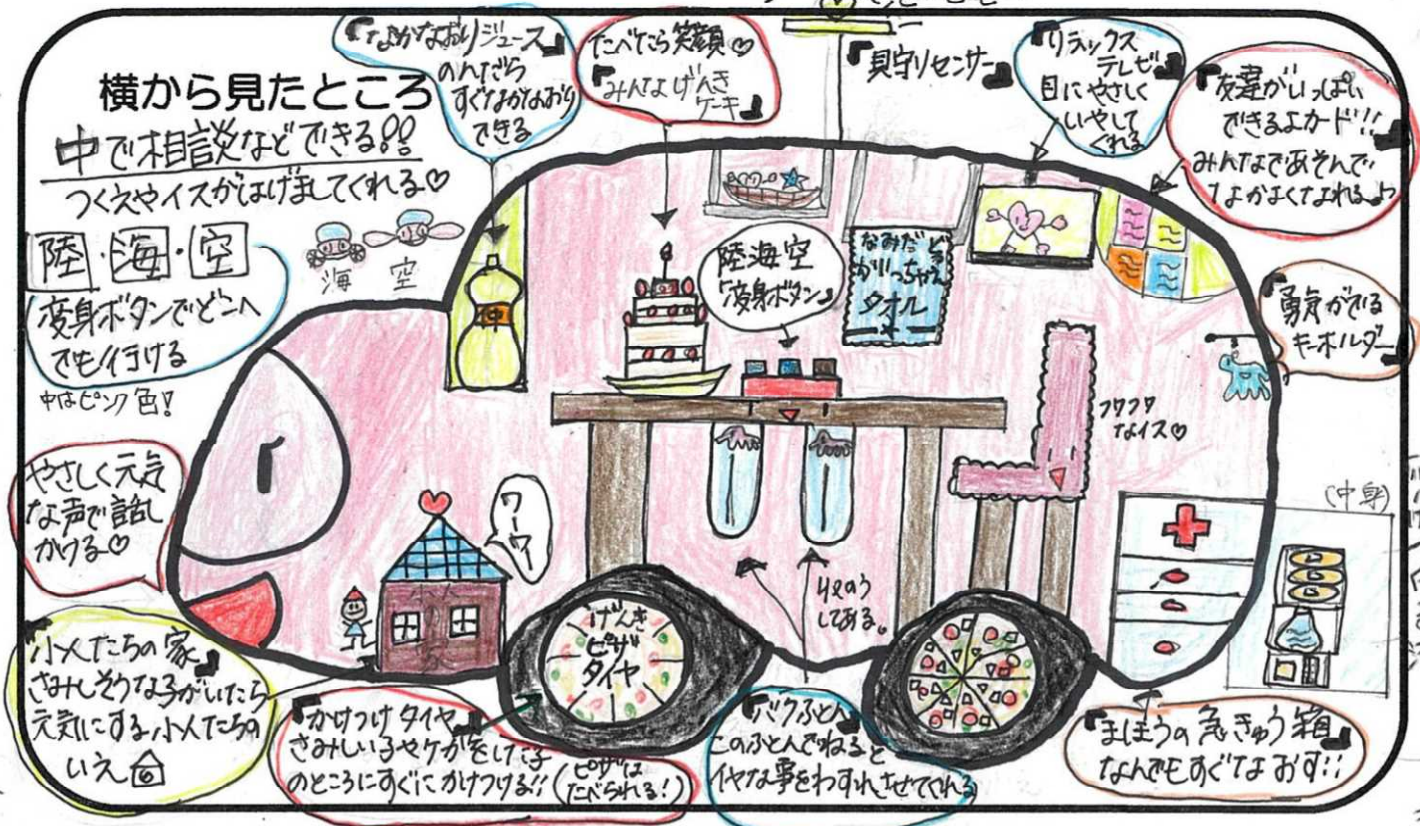 横から見たところ
中で相談などできる!!
つくえやイスがはげましてくれる♡
陸・海・空
変身ボタンでどこへ
でも行ける
中はピンク色!
海 空
『なかなおりジュース』
のんだら
すぐなかなおり
できる
たべたら笑顔♡
『みんなげんき
ケーキ』
『見守りセンサー』
『リラックス
テレビ』
目にやさしく
いやして
くれる
『友達がいっぱい
できるよカード!!』
みんなであそんで
なかよくなれるよ♪
『勇気がでる
キーホルダー』
仲
陸海空
『変身ボタン』
なみだ
が
いっちゃえ
タオル
フワフワ
なイス♡
やさしく元気
な声で話し
かける♡
ワーワー
小人
家
『小人たちの家』
さみしそうな子がいたら
元気にする小人たちの
いえ
げんき
ピザ
タイヤ
『かけつけタイヤ』
さみしい子やケガをした子
のところにすぐにかけつける!!
(ピザは
たべられる!)
しゅうのう
してある。
『バクふとん』
このふとんでねると
イヤな事をわすれさせてくれる
『まほうの急きゅう箱』
なんでもすぐなおす!!
(中身)